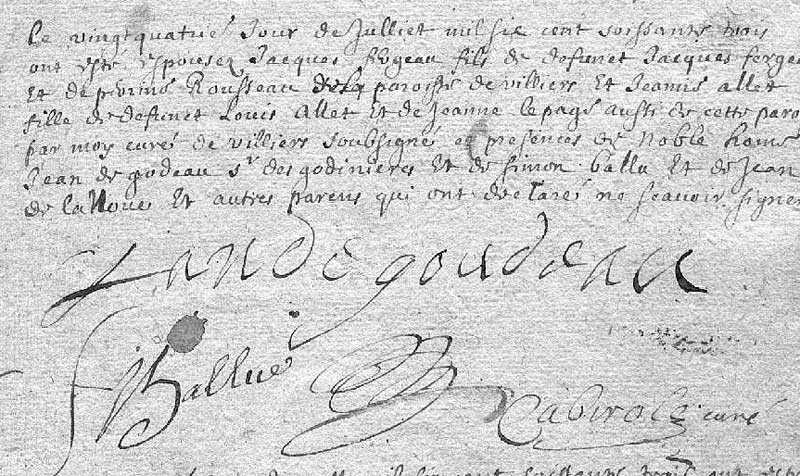 Le vingtquatrie Jour de Julliet mil six cent soissante trois
ont este espousez Jacques fergeau fils de defunct Jacques fergea
Et de perrine Rousseau de la paroisse de villiers Et Jeanne allet
fille de defunct Louis Allet Et de Jeanne le page aussi de cette paro
par moy curé de villiers soubsigné es presences de Noble home
Jean de godeau sr des godinieres Et de simon ballu Et de Jean
de la Noue Et autres parens qui ont declaré ne scavoir signer
Jan De goudeau
S Ballue
curé